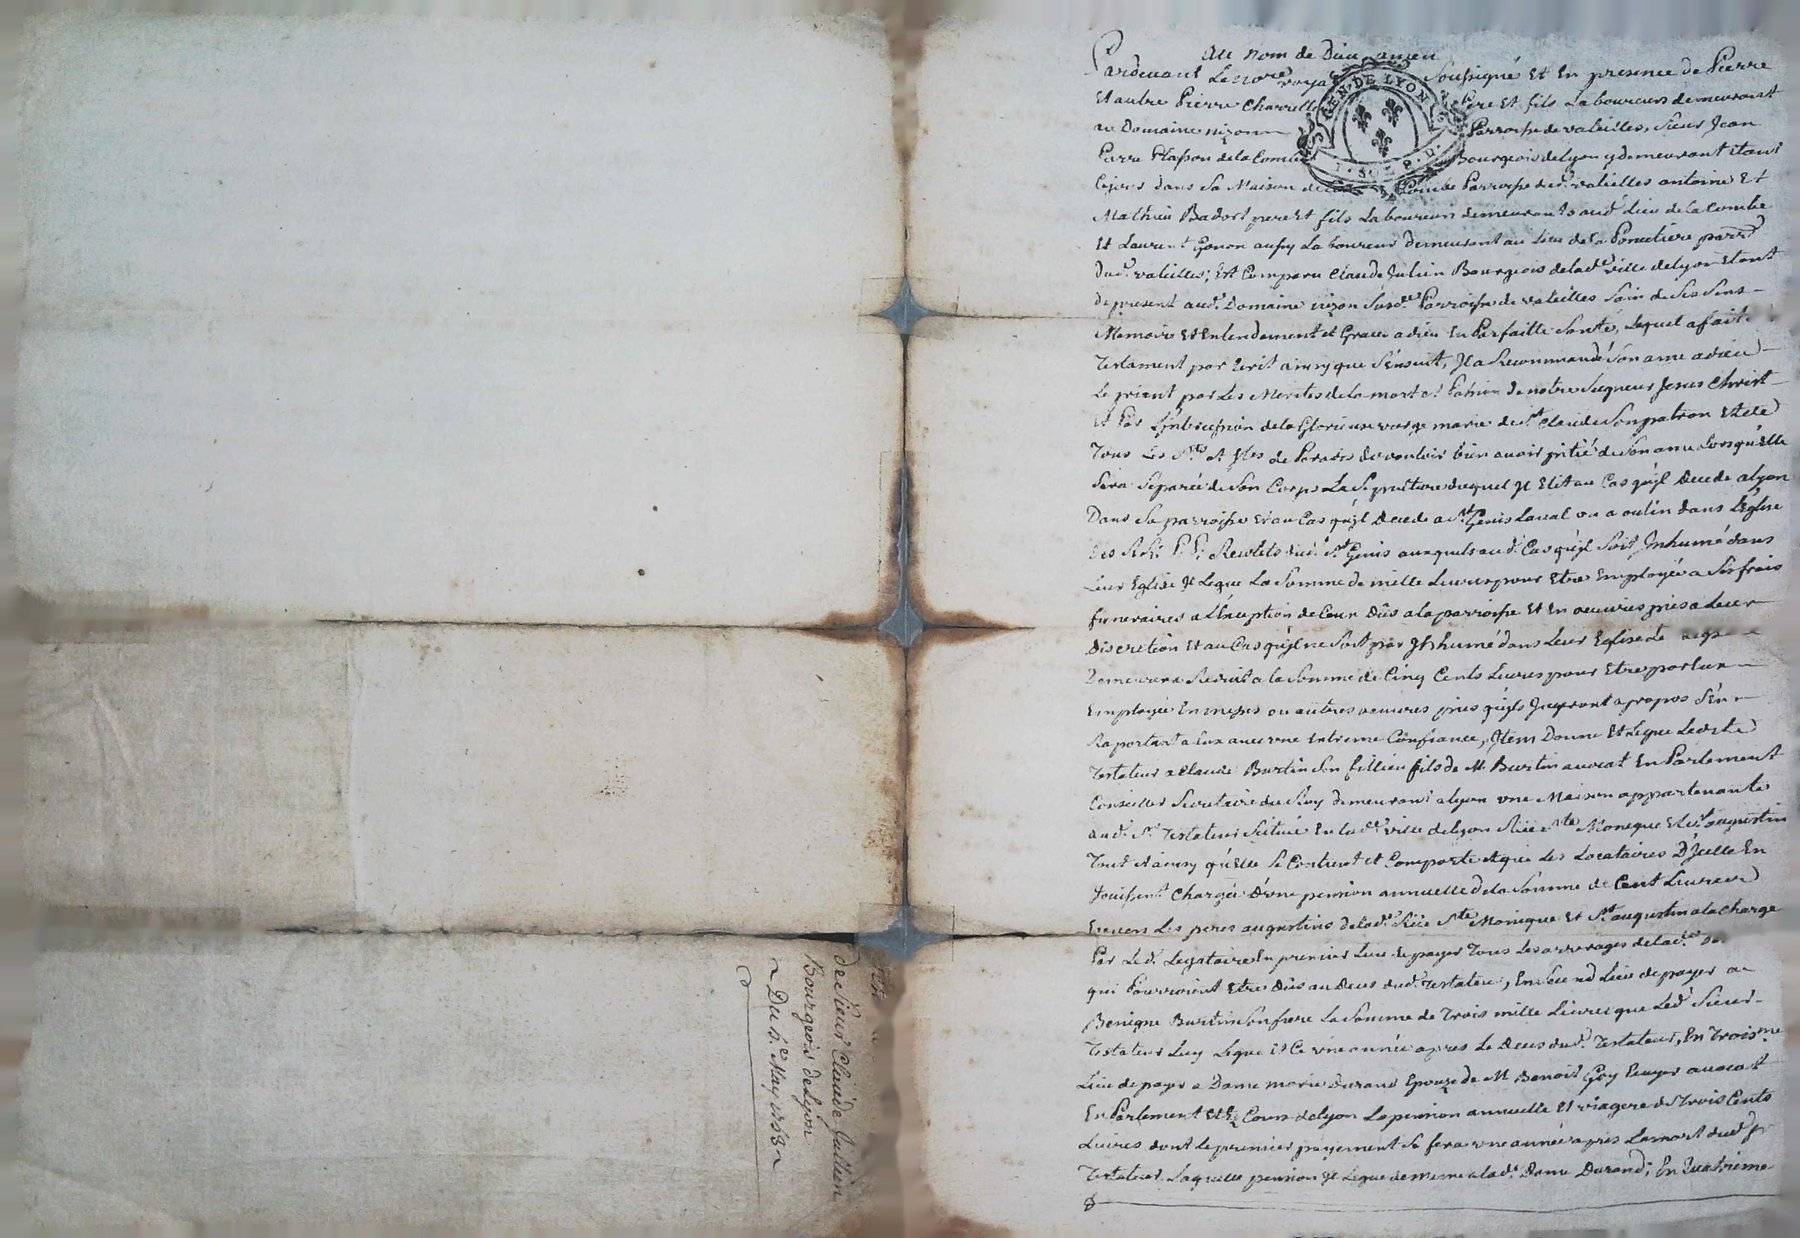 Au nom de Dieu amen
Pardevant Le nore royal Soussigné Et En presence de Pierre
Et autre Pierre Charrellon pere Et fils Laboureurs demeurant
au Domaine nizon Parroisse de valeilles, Sieur Jean
Pierre Plasson de la Combe Bourgeois de Lyon y demeurant Etant
dans Sa Maison de la Combe Parroisse dud. valeilles antoine Et
Mathieu Badost pere Et fils Laboureurs demeurants aud. Lieu de la Combe
Et Laurent Gonon aussy Laboureur demeurant au Lieu de la parr.
dud. valeilles; Est Comparu Claude Julien Bourgeois de lad.e ville de Lyon Etant
de present aud. Domaine nizon Susd. Parroisse de valeilles Sain de Ses Sens
Memoire Et Entendement et Grace a dieu En Parfaitte Santé, Lequel a fait
Testament par Ecrit ainsy que S'ensuit, Il a Recommandé Son ame a dieu
Le priant par Les Merites de la mort et Passion de notre Seigneur Jesus Christ
Et Par L'intercession de la Glorieuse vierge marie de St. Claude Son patron Et de
Tous Les Sts. et Stes de Paradis de vouloir bien avoir pitié de Son ame Lorsqu'Elle
Sera Separée de Son Corps La Sepulture duquel Il Elit au Cas qu'il Decede a Lyon
Dans Sa parroisse Et au Cas qu'il Decede a St. Genis Laval ou a oulin dans L'Eglise
des R.R. P.P. Recolets dud. St. Genis auxquels aud. Cas qu'il Soit Inhumé dans
Leur Eglise Il Legue La Somme de mille Livres pour Etre Employée a Ses frais
funeraires a L'Exception de Ceux Dûs a la parroisse Et En oeuvres pies a Leur
Discretion Et au Cas qu'il ne Soit pas Inhumé dans Leur Eglise Le Legs
Demeurera Reduit a la Somme de Cinq Cents Livres pour Etre par Eux
Employée En messes ou autres oeuvres pies qu'ils Jugeront a propos S'en
Raportant a Eux avec une Entiere Confiance, Item Donne Et Legue Led. Sr.
Testateur a Claude Burtin Son fillieu fils de M. Burtin avocat En Parlement
Conseiller Secretaire du Roy demeurant a Lyon une Maison appartenante
aud. Sr. Testateur Scituée En lad.e ville de Lyon Rüe Ste Monique Et St. augustin
Tout et ainsy qu'Elle Se Contient et Comporte et que Les Locataires D'Icelle En
Jouissent Chargée D'une pension annuelle de la Somme de Cent Livres
Envers Les peres augustins de lad. Rüe Ste Monique Et St. augustin a la Charge
Par Led. Legataire En premier Lieu de payer Tous Les arrerages de lad.
qui Pourroient Etre Dûs au Deces dud. Testateur, En Second Lieu de payer au
Benigne Burtin Son frere La Somme de Trois mille Livres que Led. Sieur
Testateur Luy Legue Et Ce une année apres Le Deces dud. Testateur, En Trois.me
Lieu de payer a Dame marie Durand Epouze de M. Benoist Goy Ecuyer avocat
En Parlement Et Cours de Lyon La pension annuelle Et viagere de Trois Cents
Livres dont le premier payement Se fera une année après La mort dud. Sr.
Testateur Laquelle pension Il Legue de meme a lad. Dame Durand; En Quatrieme
de Sieur Claude Jullien
Bourgeois de Lyon
Du 5.e May 1763
GEN. DE LYON